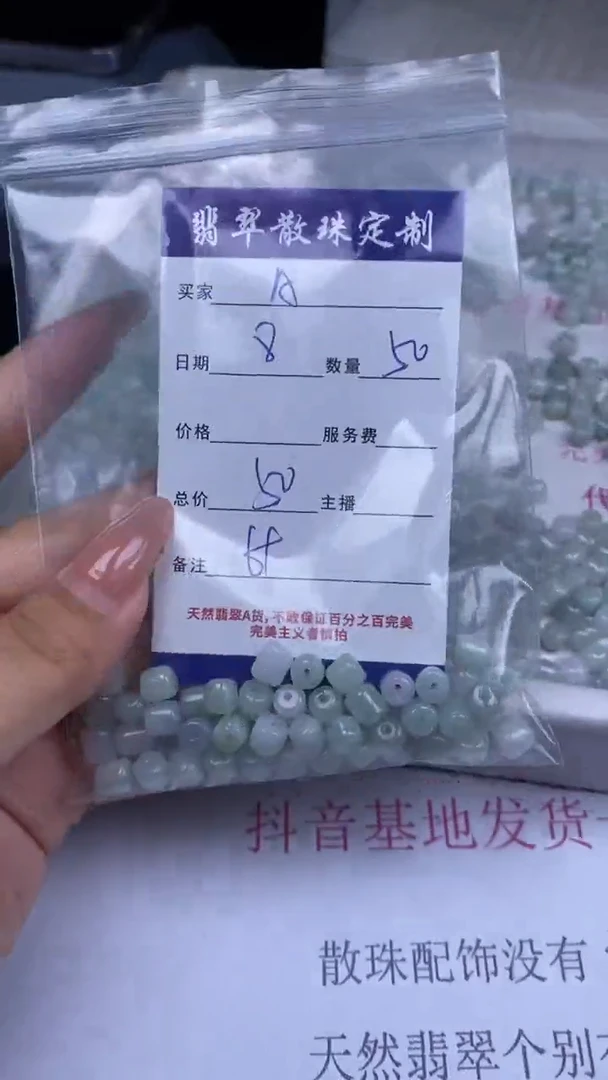 翡翠散珠定制
买家 A
日期 8 数量 50
价格 服务费
总价 50 主播
备注
天然翡翠A货,不敢保证百分之百完美
完美主义者慎拍
完美
代
抖音基地发货
散珠配饰没有
天然翡翠个别